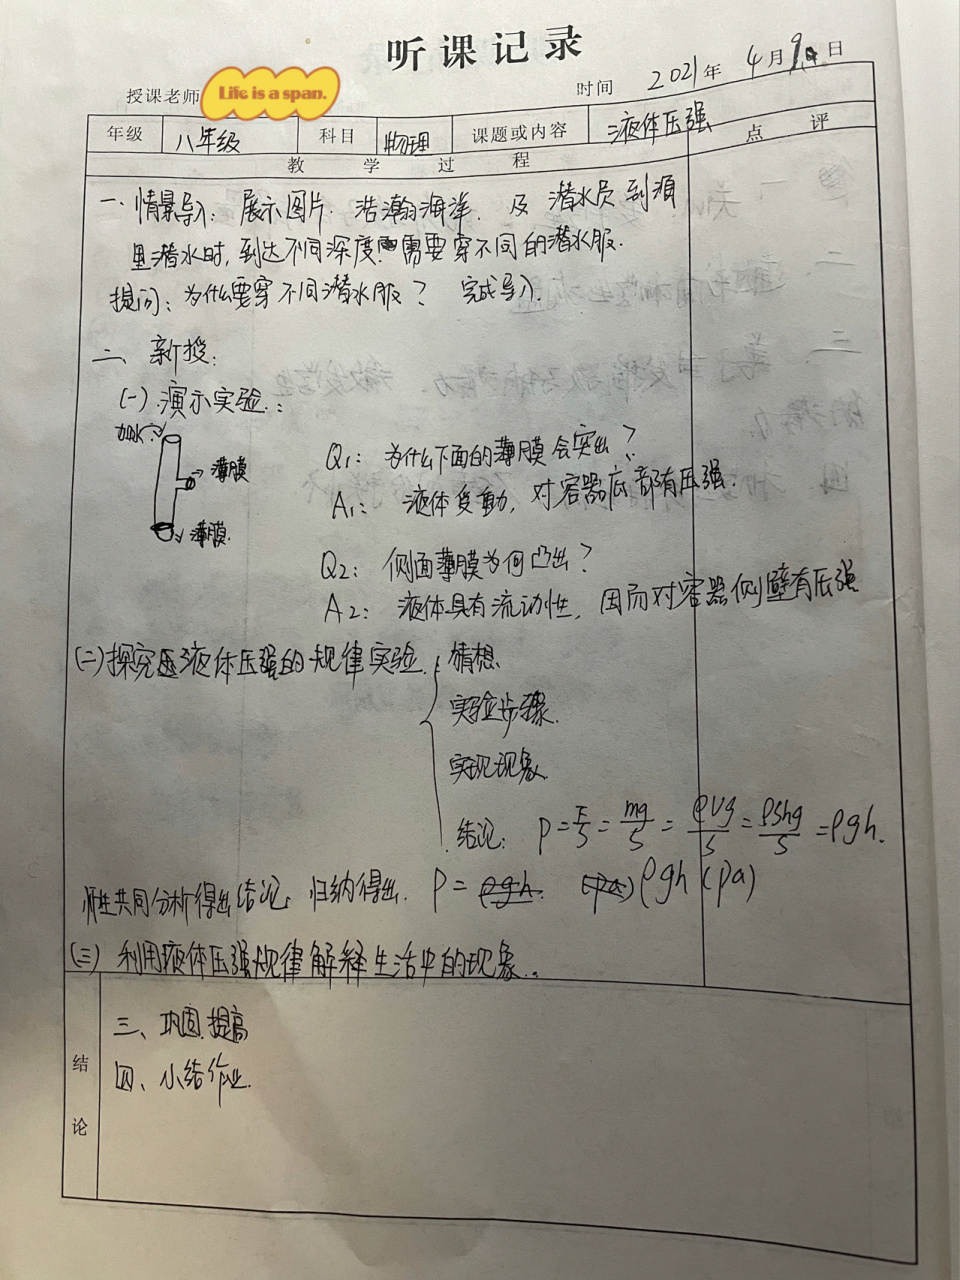 听课记录
授课老师 Life is a span. 时间 2021年 4月9日
年级 八年级 科目 物理 课题或内容 液体压强 点评
教学过程
一、情景导入: 展示图片. 浩瀚海洋. 及 潜水员到海
里潜水时, 到达不同深度 需要穿不同的潜水服.
提问: 为什么要穿不同潜水服? 完成导入.
二、新授:
(一) 演示实验:
加水
薄膜
薄膜
Q1: 为什么下面的薄膜会突出?
A1: 液体受重力, 对容器底部有压强.
Q2: 侧面薄膜为何凸出?
A2: 液体具有流动性, 因而对容器侧壁有压强
(二) 探究液体压强的规律实验. 猜想.
实验步骤.
实现现象.
结论: P=F/S=mg/S=ρVg/S=ρShg/S=ρgh.
师生共同分析得出结论, 归纳得出. P= ρgh (pa) ρgh (pa)
(三) 利用液体压强规律解释生活中的现象.
结论
三、巩固.提高
四、小结作业.